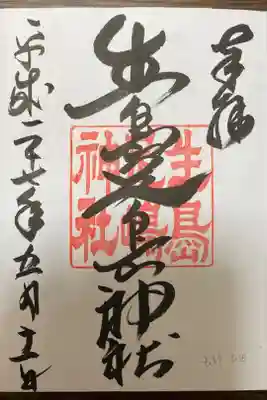 奉拝
生島足島神社
生島
足島
神社
平成二十七年五月